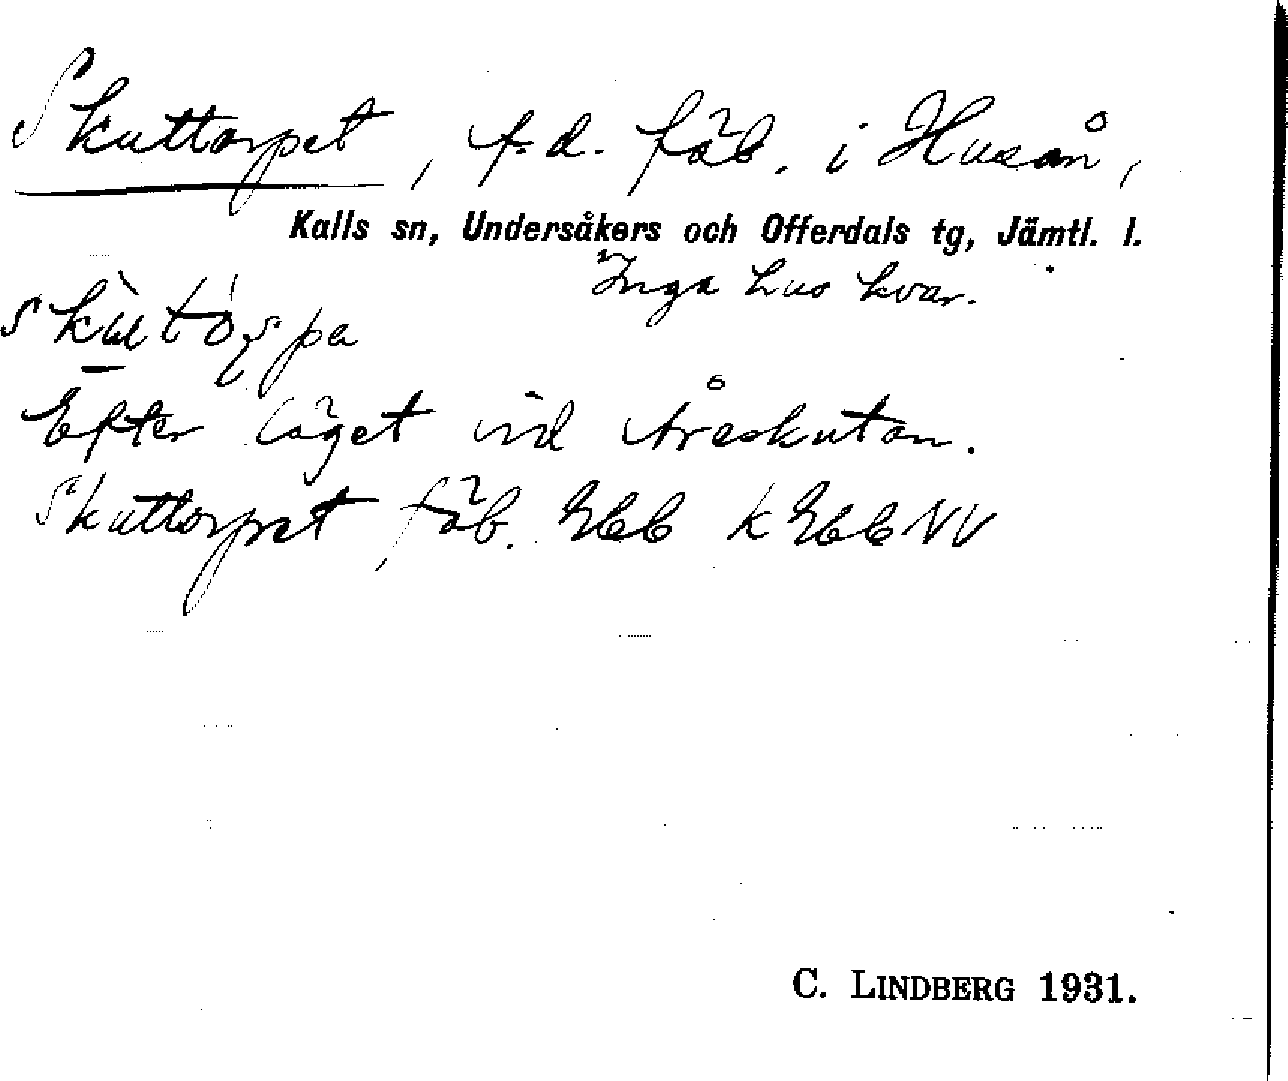 Skuttorpet, f.d. fäb. i Husån,
Kalls sn, Undersåkers och Offerdals tg, Jämtl. l.
Inga hus kvar.
Efter läget vid Åreskutan.
Skuttorpet fäb. Ebb k Ebb NV
C. LINDBERG 1931.